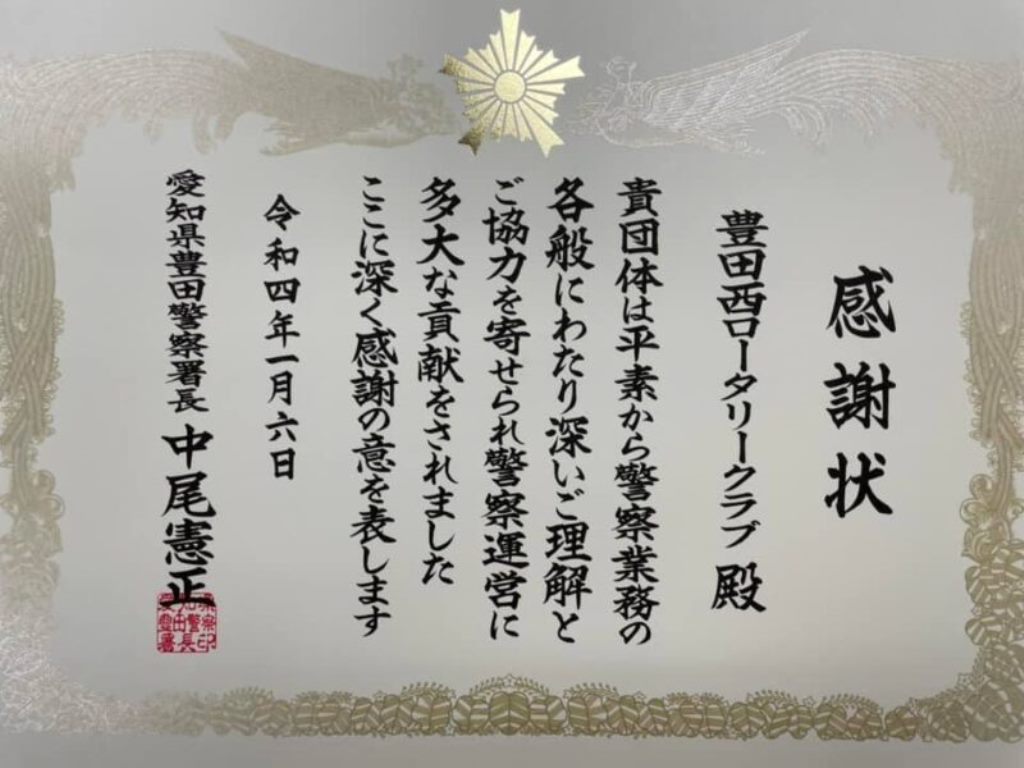 感謝状
豊田西ロータリークラブ 殿
貴団体は平素から警察業務の
各般にわたり深いご理解と
ご協力を寄せられ警察運営に
多大な貢献をされました
ここに深く感謝の意を表します
令和四年一月六日
愛知県豊田警察署長 中尾憲正